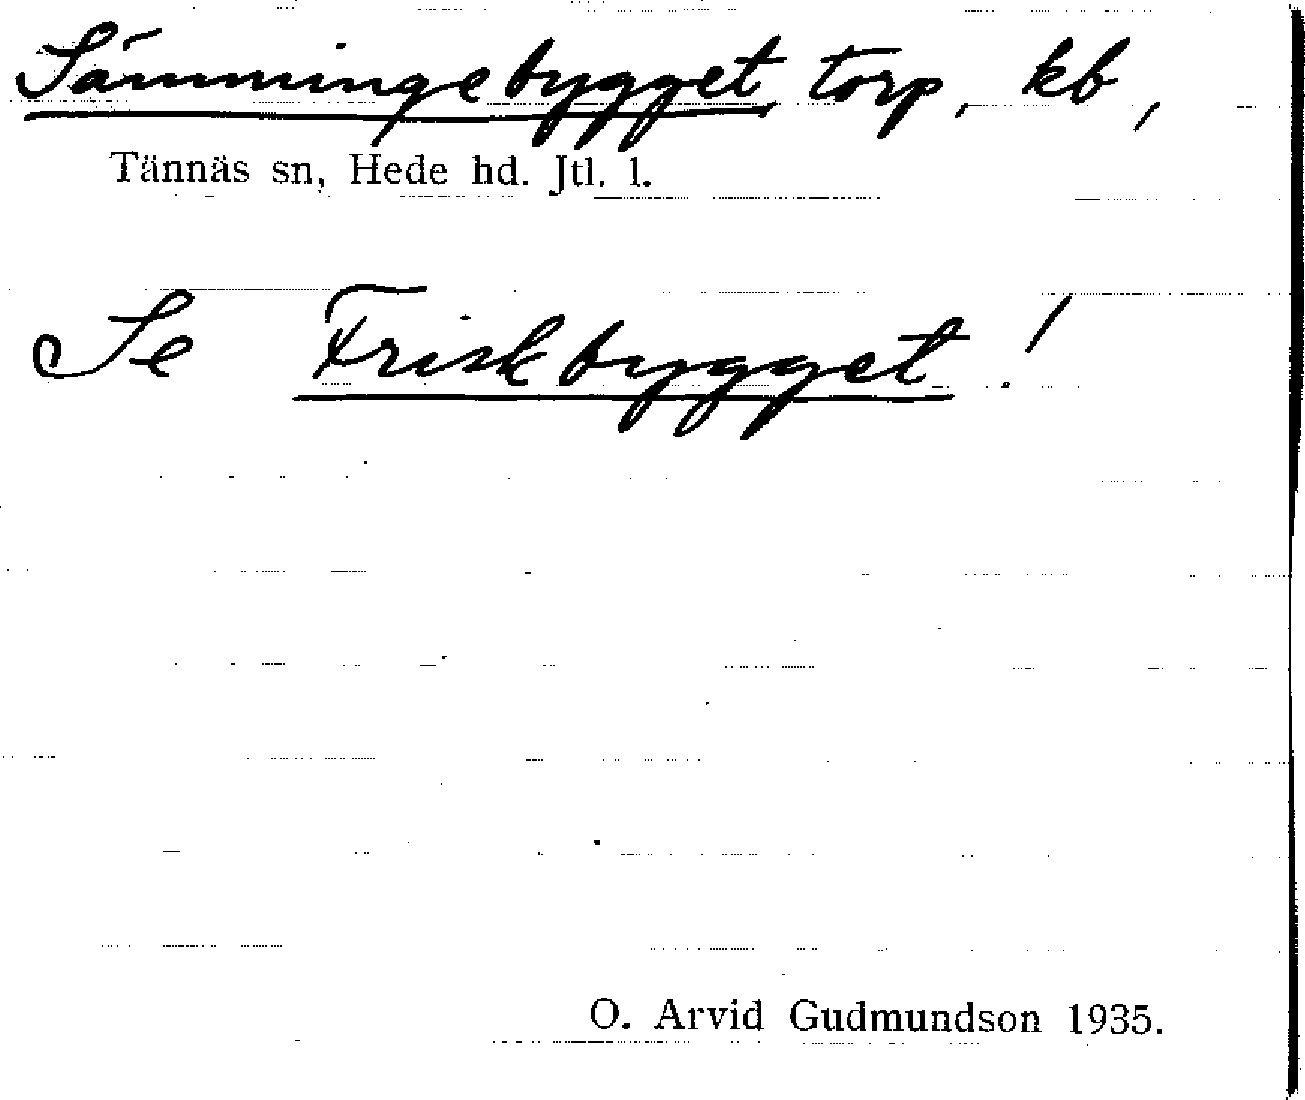 Sämmingebygget, torp, kb,
Tännäs sn, Hede hd. Jtl. l.
Se Friskbygget!
O. Arvid Gudmundson 1935.